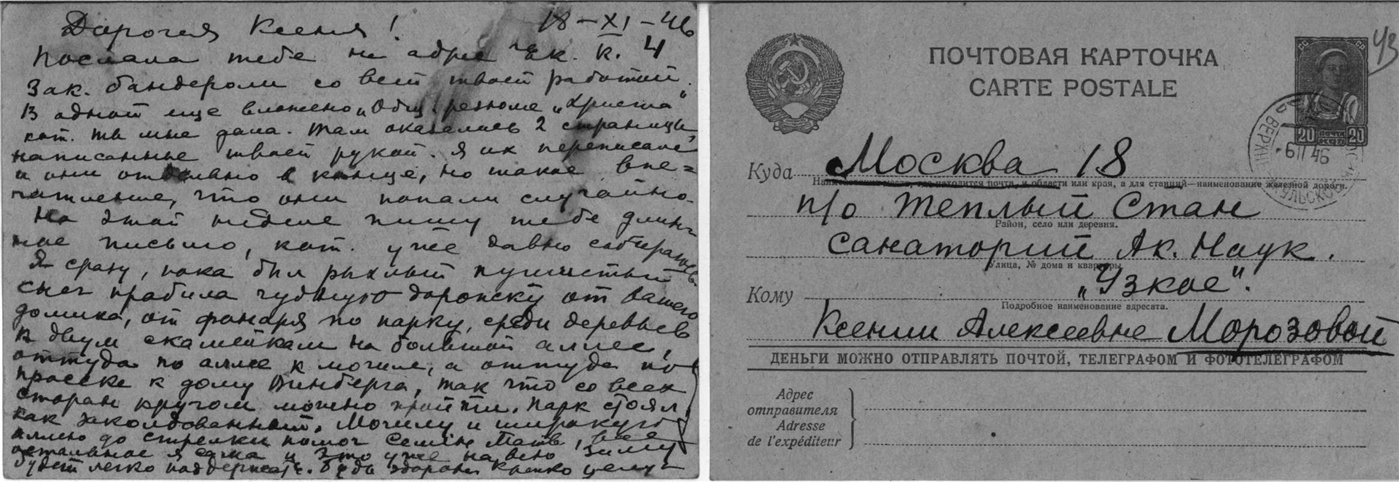 Дорогая Ксения! 18-XI-46
Послала тебе на адрес к. 4
Зак. бандероли со всей твоей работой.
В одной еще вложено „Общ. резюме „Христа"
кот. ты мне дала. Там оказались 2 страницы,
написанные твоей рукой. Я их переписала
и они в конце, но такое впе=
чатление, что они попали случайно.
На этой неделе пишу тебе длин=
ное письмо, кот. уже давно собиралась
Я сразу, пока был рыхлый пушистый
снег пробила чудную дорожку от вашего
домика, от фонаря по парку, среди деревьев
к двум скамейкам на большой аллее,
оттуда по аллее к могиле, а оттуда по
просеке к дому Винберга, так что со всех
сторон кругом можно пройти. Парк стоял,
как заколдованный. Могилу и широкую
до стрелки помог Семен Матв, все
остальное я сама и это уже на всю зиму
будет легко поддержать. Будь здорова крепко целую
ПОЧТОВАЯ КАРТОЧКА
CARTE POSTALE
СС СР
20 ПОЧТА КОП 20
6 11 46
Куда Москва 18
Наименование места, где находится почта, и области или края, а для станций—наименование железной дороги.
п/о Теплый Стан
Район, село или деревня.
Санаторий Ак. Наук.
Улица, № дома и квартиры.
„Узкое".
Кому
Подробное наименование адресата.
Ксении Алексеевне Морозовой
ДЕНЬГИ МОЖНО ОТПРАВЛЯТЬ ПОЧТОЙ, ТЕЛЕГРАФОМ И ФОТОТЕЛЕГРАФОМ
Адрес
отправителя
Adresse
de l'expéditeur